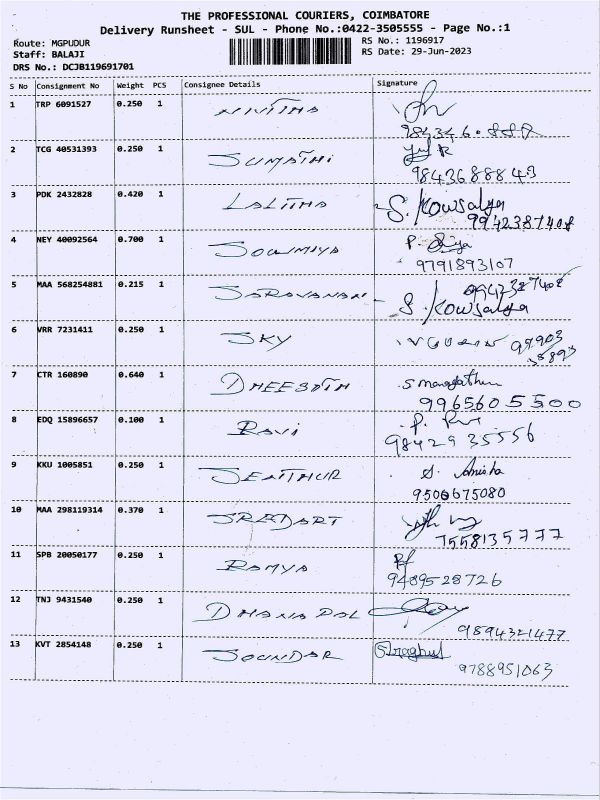 THE PROFESSIONAL COURIERS, COIMBATORE
Delivery Runsheet - SUL - Phone No.:0422-3505555 - Page No.:1
Route: MGPUDUR
Staff: BALAJI
DRS No.: DCJB119691701
RS No.: 1196917
RS Date: 29-Jun-2023
S No Consignment No Weight PCS Consignee Details Signature
1 TRP 6091527 0.250 1 NIVITHA
2 TCG 40531393 0.250 1 SUMATHI
9843688843
3 PDK 2432828 0.420 1 LALITHA S. Kowsalya
9942387408
4 NEY 40092564 0.700 1 SOWMIYA P. Priya
9791893107
5 MAA 568254881 0.215 1 SARAVANAN 9942387408
S. Kowsalya
6 VRR 7231411 0.250 1 SKY
7 CTR 160890 0.640 1 DHEESDIM
9965605500
8 EDQ 15896657 0.100 1 RAVI
9842935556
9 KKU 1005851 0.250 1 SENTHUR S. Anisha
9500675080
10 MAA 298119314 0.370 1
7558135777
11 SPB 20050177 0.250 1 RAMYA
9489528726
12 TNJ 9431540 0.250 1 DHANAPAL
9894321477
13 KVT 2854148 0.250 1 SOUNDAR S.raghul
9788951063